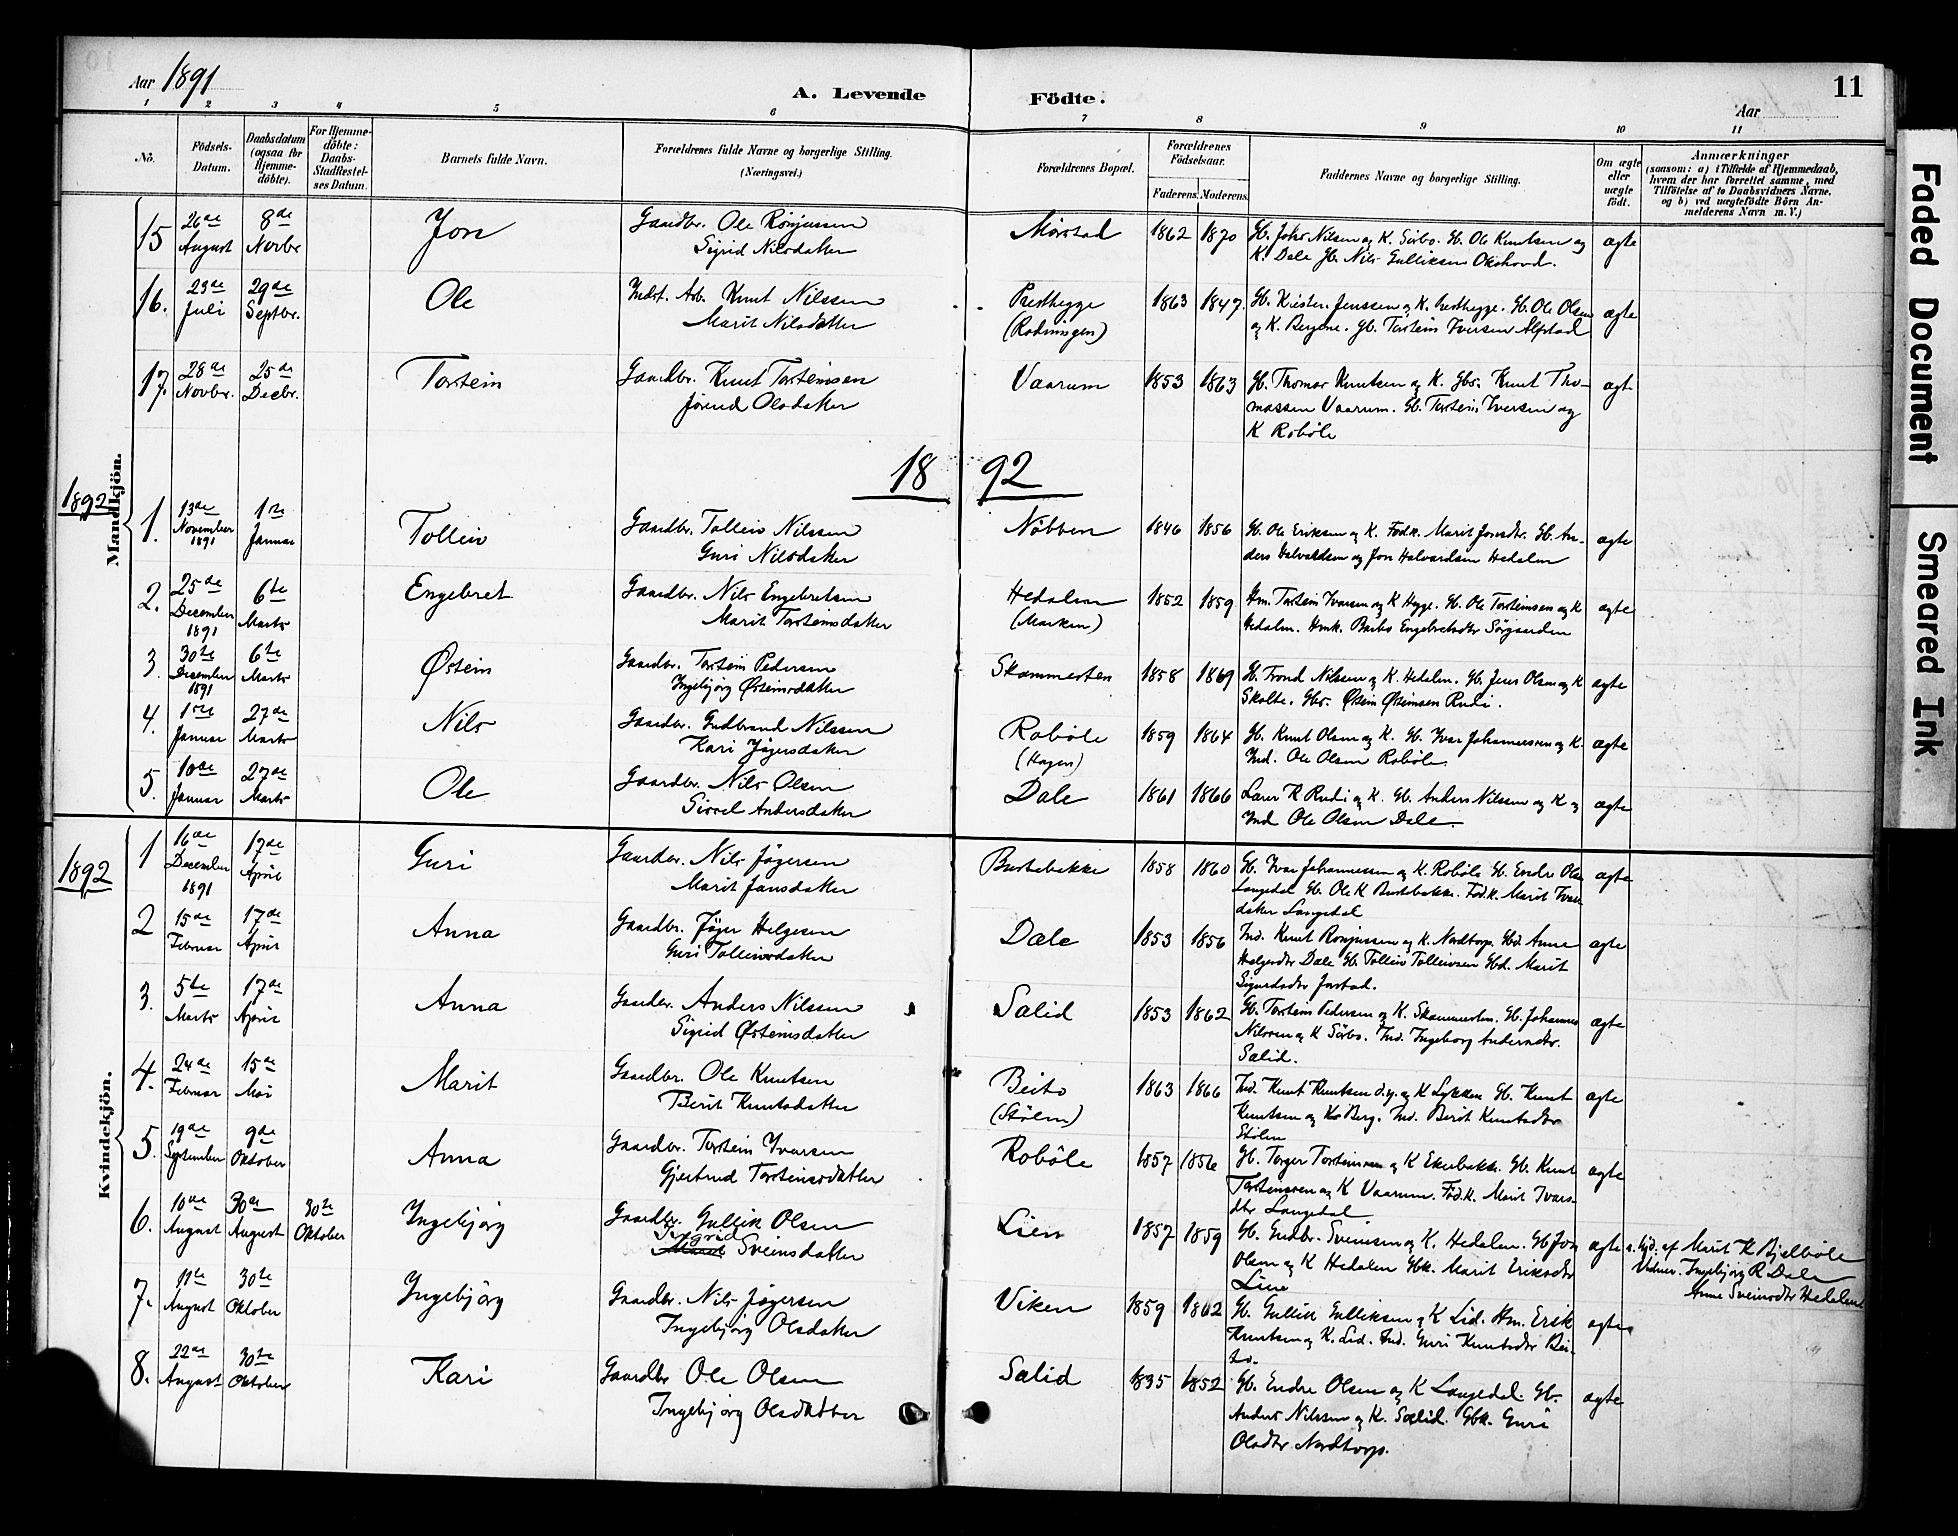 Aar 1891
A. Levende Födte.
Aar
11
1 2 3 4 5 6 7 8 9 10 11
No.
Födsels-Datum.
Daabsdatum (ogsaa for Hjemme-döbte).
For Hjemme-döbte: Daabs-Stadfæstel-ses Datum.
Barnets fulde Navn.
Forældrenes fulde Navne og borgerlige Stilling. (Næringsvei.)
Forældrenes Bopæl.
Forældrenes Födselsaar.
Faderens. Moderens.
Faddernes Navne og borgerlige Stilling.
Om ægte eller uægte födt.
Anmærkninger
(saasom: a) i Tilfælde af Hjemmedaab, hvem der har forrettet samme, med Tilföielse af to Daabsvidners Navne, og b) ved uægtefödte Börn Anmelderens Navn m. V.)
Mandkjön.
15 26de August 8de Novbr Jon Gaardbr. Ole
Sigrid Nilsdatter Mørstad 1862 1870 Gb. John Nilsen og K. Sørbo. Gb. Ole Knutsen og
K. Dale Gb. Nils Gulliksen Okshovd. ægte
16. 23de Juli 29de Septbr. Ole Indst. Arb. Knut Nilssen
Marit Nilsdatter Præsthegge 1863 1847. Gb. Kristen Jenssen og K. Præsthegge. Gb. Ole Olsen
og K. Gb. Torstein Iversen Alfstad ægte
17. 28de Novbr. 25de Decbr. Torstein Gaardbr. Knut Torsteinsen
Jørend Olsdatter Vaarum 1853 1863 Gb. Thomas Knutsen og K. Gbs. Knut Tho-
massen Vaarum. Gb. Torstein Iversen og
K Robøle ægte
1892
1892
1. 13de November 1891 1ste Januar Tolleiv Gaardbr. Tolleiv Nilssen
Guri Nilsdatter Nöbben 1846 1856 Gb. Ole Eriksen og K. Fødk. Marit Jonsdtr. Gb. An-
ders og Jon Halvardsen Hedalen ægte
2. 25de December 1891 6te Marts Engebret Gaardbr. Nils Engebretsen
Marit Torsteinsdatter Hedalen (Marken) 1852 1859 Hm. Torstein Ivarsen og K Hegge. Gb. Ole Torsteinsen og K
Hedalen. Hmk. Barbo Engebretsdtr Sørgaarden ægte
3. 30te December 1891 6te Marts Østein Gaardbr. Torstein Pedersen
Ingebjørg Østeinsdatter Skammesten 1858 1869 Gb. Trond Nilssen og K. Hedalen. Gb. Jens Olsen og K
Skolte. Gbs. Østein Østeinsen Rudi. ægte
4. 1ste Januar 27de Marts Nils Gaardbr. Gudbrand Nilssen
Kari Jøgersdatter Robøle (Hagen) 1859 1864 Gb. Knut Olsen og K. Gb. Ivar Johannessen og K.
Ind. Ole Olsen Robøle. ægte
5. 10de Januar 27de Marts Ole Gaardbr. Nils Olsen
Sissel Andersdatter Dale 1861 1866 Lærer K Rudi og K. Gb. Anders Nilssen og K og
Ind Ole Olsen Dale. ægte
1892
Kvindekjön.
1 16de December 1891 17de April Guri Gaardbr. Nils Jøgersen
Marit Jonsdatter Burtebakke 1858 1860 Gb. Ivar Johannessen og K. Robøle Gb. Endre Olsen
Langedal Gb. Ole K Burtebakke. Fødk. Marit Ivars-
datter Langedal ægte
2 15de Februar 17de April Anna Gaardbr. Jøger Helgesen
Guri Tolleivsdatter Dale 1853 1856 Ind. Knut og K. Nordtorp. Gbd. Anne
Helgesdtr Dale Gb. Tolleiv Tolleivsen Gbd. Marit
Sigurdsdtr ægte
3. 5te Marts 17de April Anna Gaardbr. Anders Nilssen
Sigrid Østeinsdatter Sælid 1853 1862 Gb. Torstein Pedersen og K. Skammesten. Gb. Johannes
Nilssen og K Sørbo. Ind. Ingeborg Andersdtr.
Sælid. ægte
4. 24de Februar 15de Mai Marit Gaardbr. Ole Knutsen
Berit Knutsdatter Beito (Stølen) 1863 1866 Ind. Knut Knutsen d.y. og K Lykken Gb. Knut
Knutsen og K. Berg. Ind. Berit Knutsdtr
Stølen ægte
5. 19de September 9de Oktober Anna Gaardbr. Torstein Ivarsen
Gjertrud Torsteinsdatter Robøle 1857 1856 Gb. Torger Torsteinsen og K Ekerbakke. Gb. Knut
Torsteinsen og K Vaarum. Fødk. Marit Ivars-
dtr Langedal ægte
6. 10de August 30de August 30te Oktober Ingebjörg Gaardbr. Gullik Olsen
Sigrid Sveinsdatter Lien 1857 1859 Gb. Gudbr. Sveinsen og K. Hedalen. Gb Jon
Olsen og K Hedalen Gbk. Marit Eriksdtr
Lien ægte af Marit K Bjelbøle
Vidner. Ingebjörg R Dale
Anne Sveinsdtr Hedalen
7. 11te August 30te Oktober Ingebjörg Gaardbr. Nils Jøgersen
Ingebjörg Olsdatter Viken 1859 1862 Gb. Gullik Gulliksen og K Lid. Hm. Erik
Knutsen og K. Lid. Ind. Guri Knutsdtr Bei-
to. ægte
8. 22de August 30te Oktober Kari Gaardbr Ole Olsen
Ingebjörg Olsdatter Sælid 1835 1852 Gb. Endre Olsen og K Langedal. Gb.
Anders Nilssen og K. Sælid. Gbk. Guri
Olsdtr Nordtorp. ægte
Faded Document
Smeared Ink